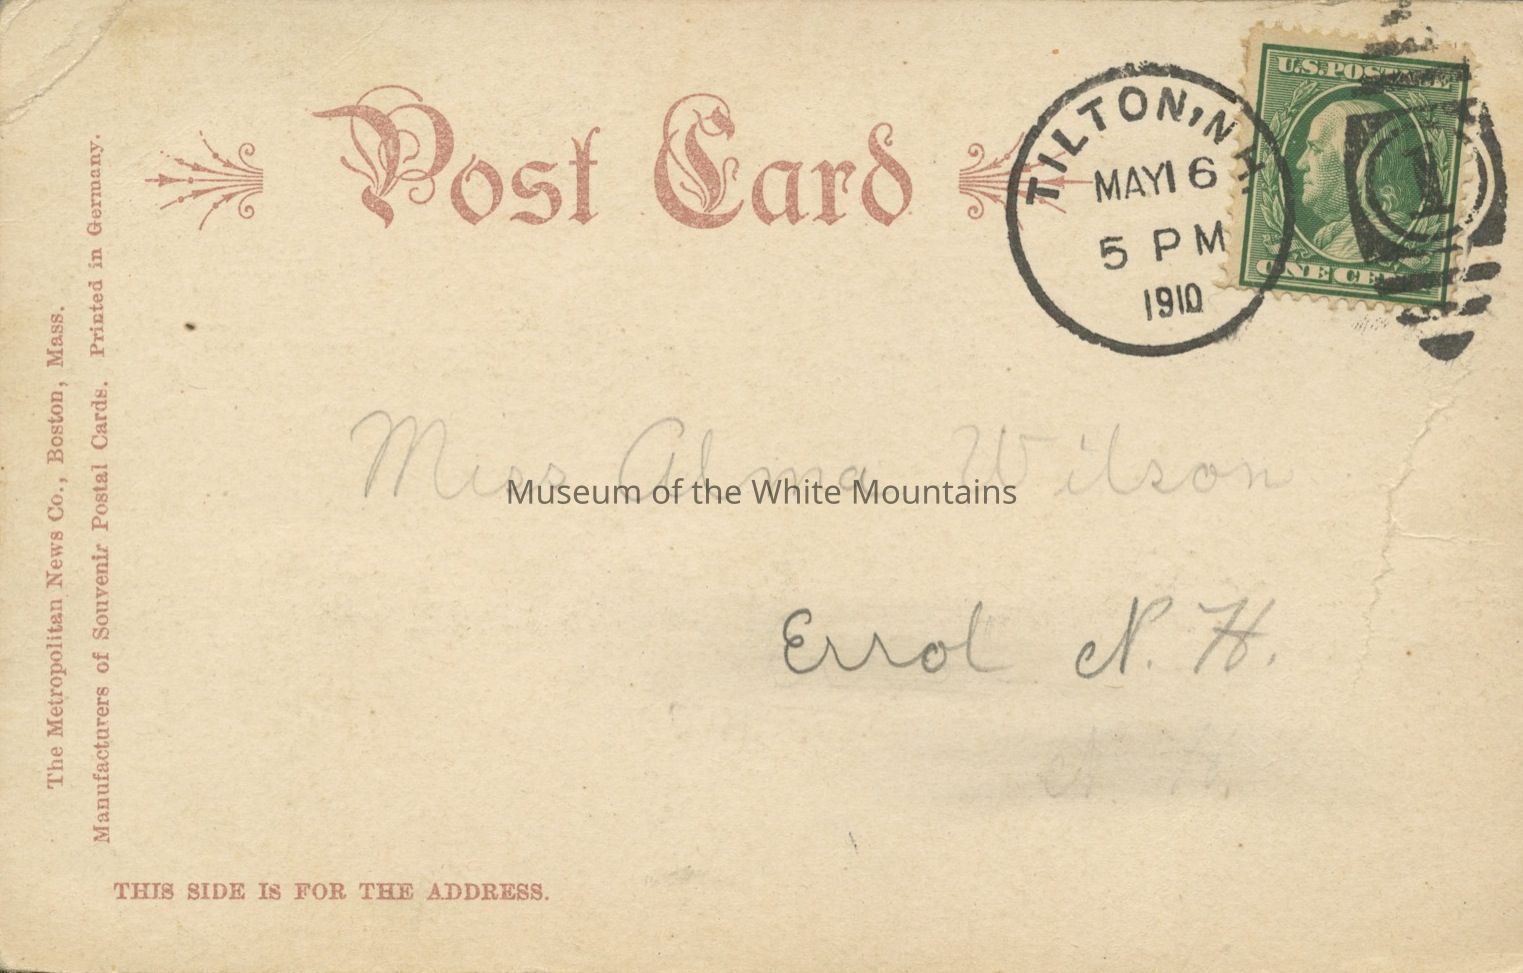 Post Card
TILTON, N.H.
MAY 16
5 PM
1910
U.S. POSTAGE
1
ONE CENT
Miss Alma Wilson
Museum of the White Mountains
Errol N. H.
N. H.
The Metropolitan News Co., Boston, Mass.
Manufacturers of Souvenir Postal Cards. Printed in Germany.
THIS SIDE IS FOR THE ADDRESS.